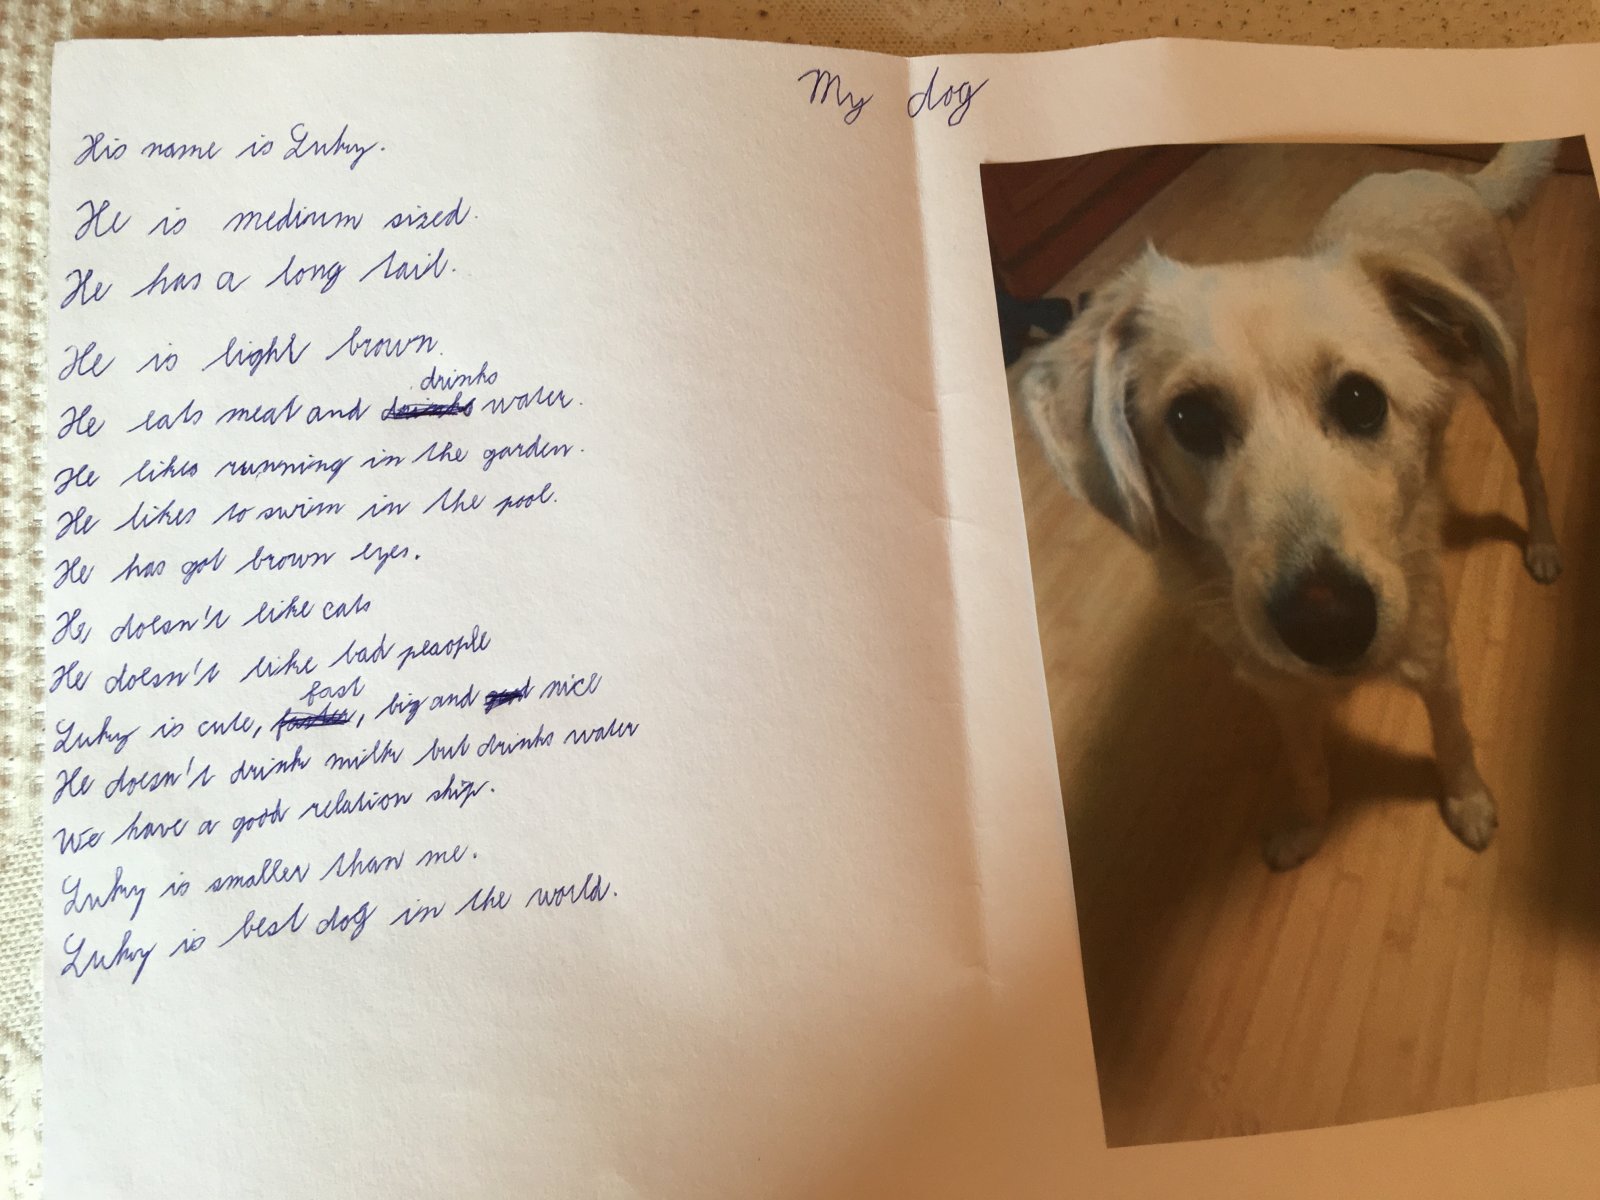 My dog
His name is Luky.
He is medium sized.
He has a long tail.
He is light brown.
drinks
He eats meat and drinks water.
He likes running in the garden.
He likes to swim in the pool.
He has got brown eyes.
He doesn't like cats
He doesn't like bad peaople
fast
Luky is cute, faster, big and good nice
He doesn't drink milk but drinks water
We have a good relation ship.
Luky is smaller than me.
Luky is best dog in the world.